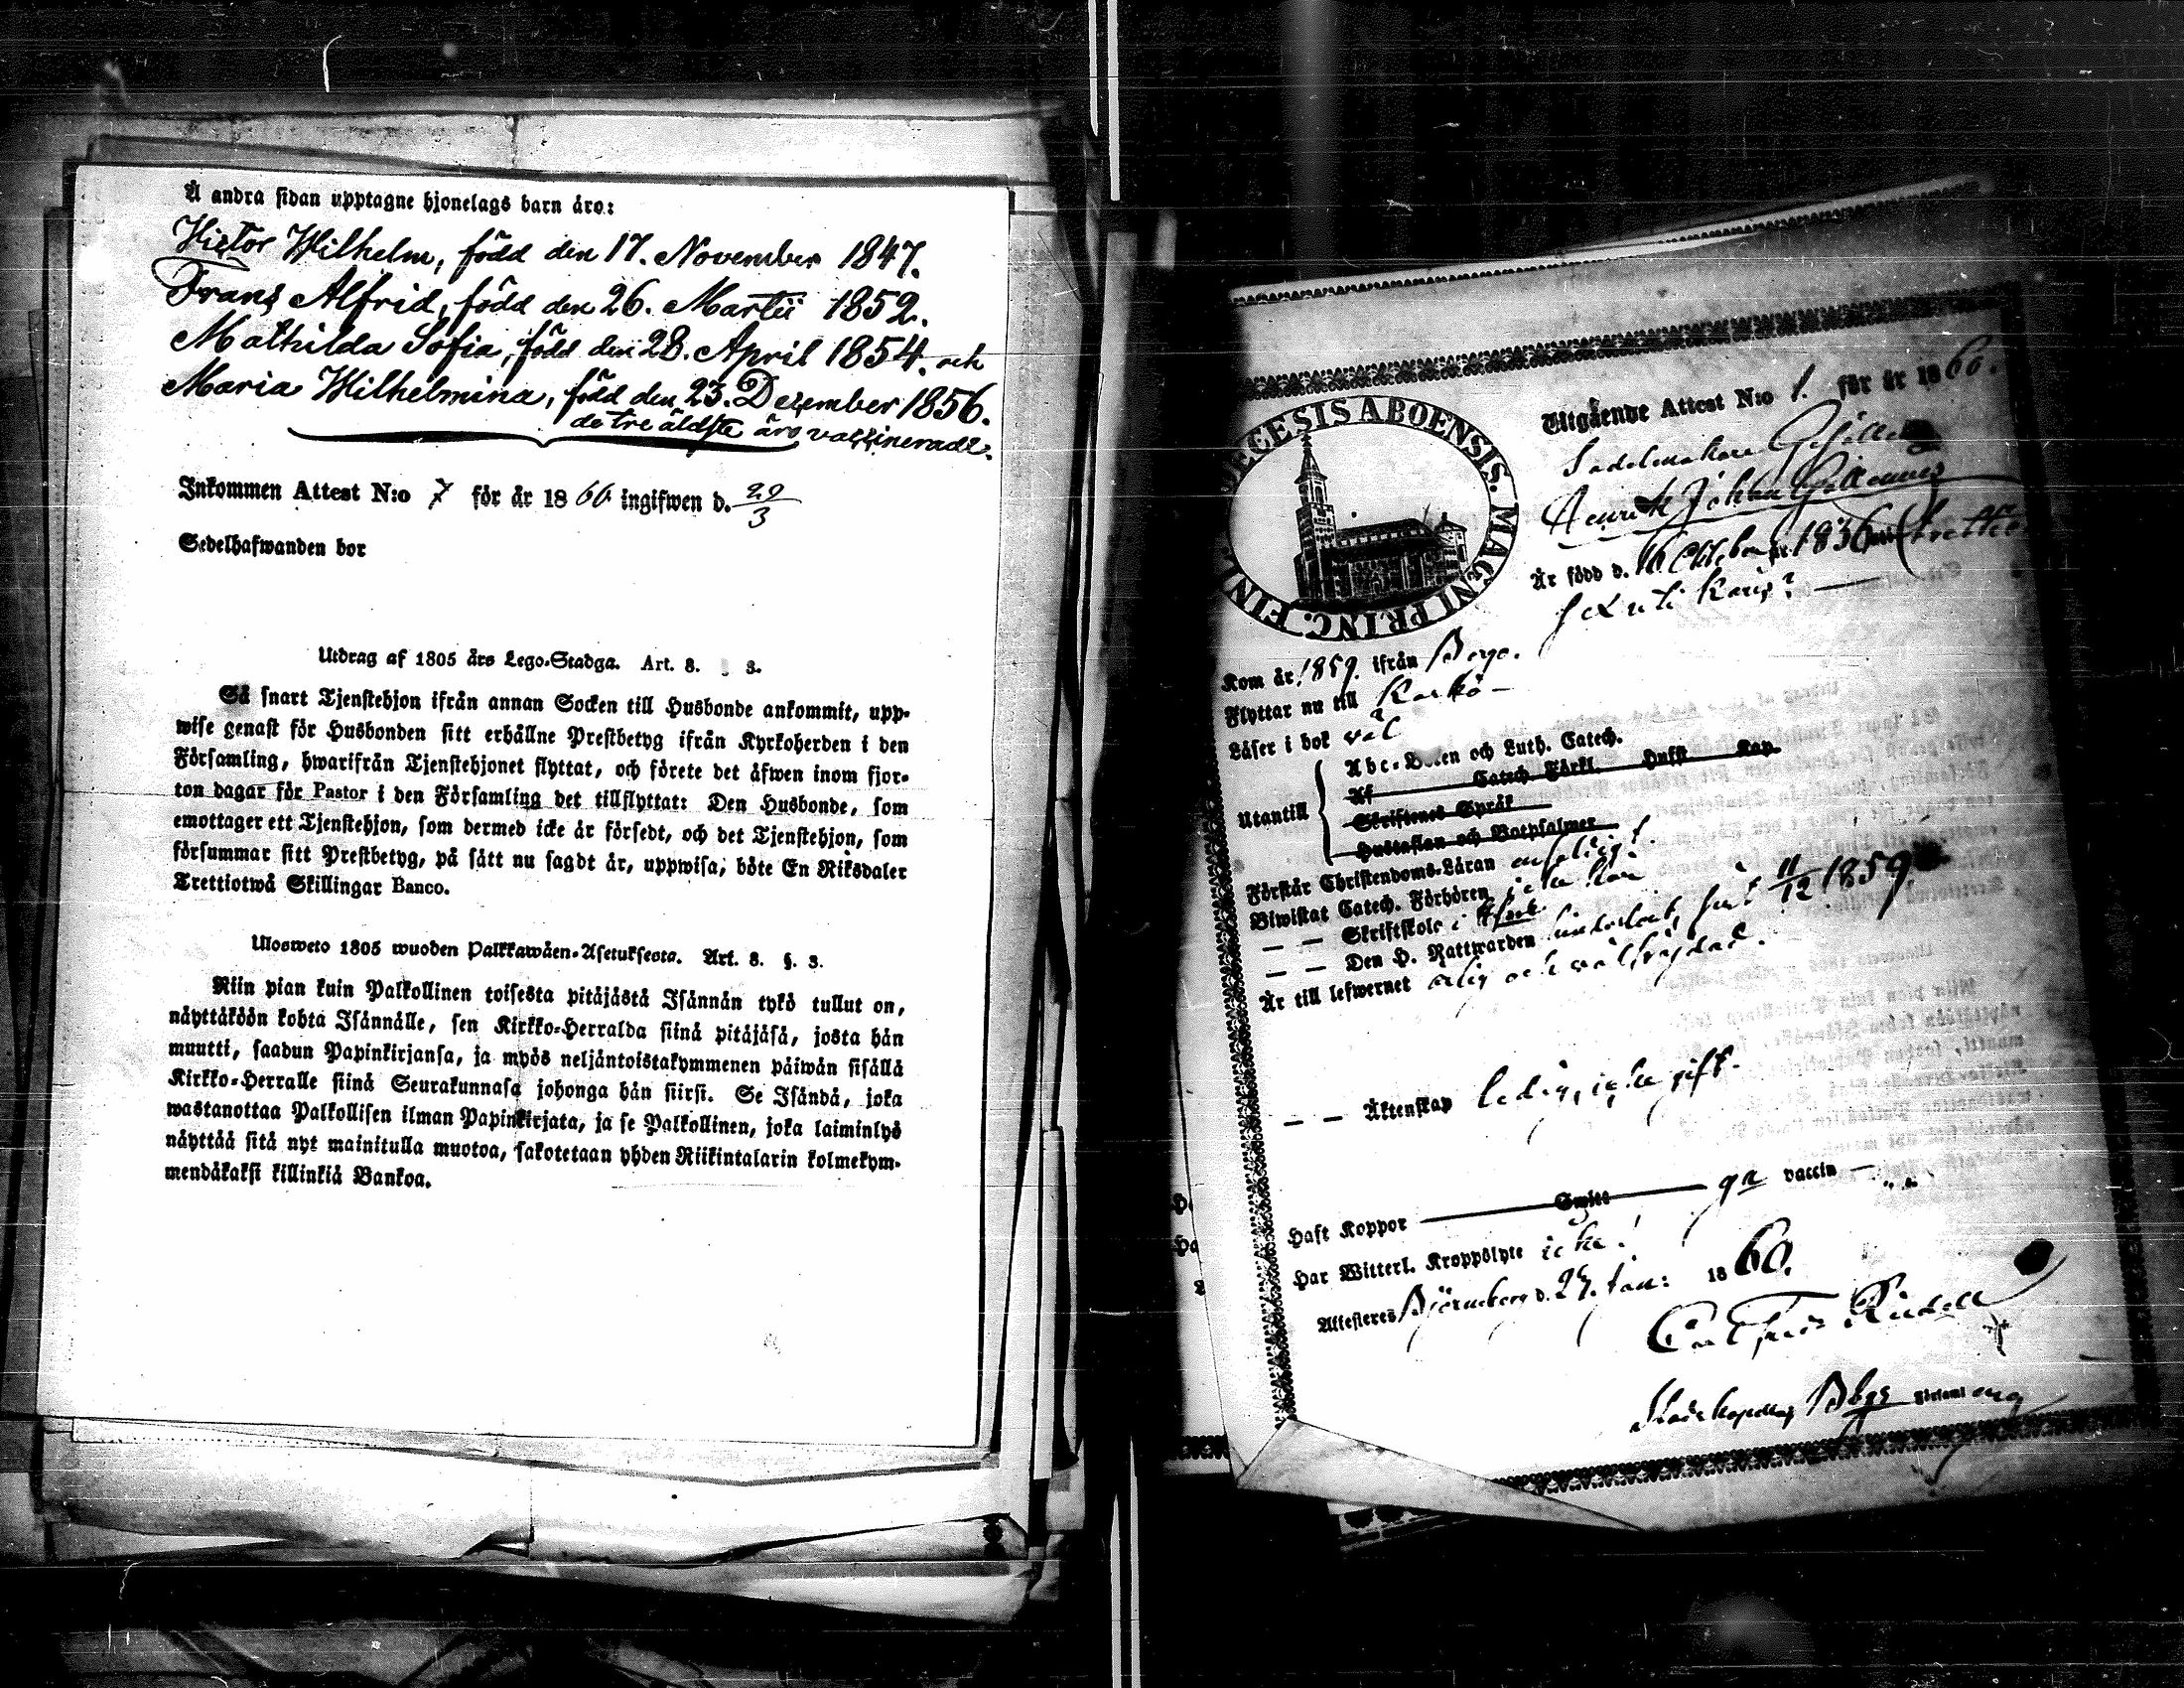 Å andra sidan upptagne hjonelags barn äro:
Victor Wilhelm, född den 17. November 1847.
Frans Alfrid, född den 26. Martii 1852.
Mathilda Sofia, född den 28. April 1854. och
Maria Wilhelmina, född den 23. December 1856.
de tre äldsta äro vaccinerade.
Inkommen Attest N:o 7 för år 1860 ingifwen d. 29/3
Sedelhafwanden bor
Utdrag af 1805 års Lego-Stadga. Art. 8. § 3.
Så snart Tjenstehjon ifrån annan Socken till Husbonde ankommit, upp-
wise genast för Husbonden sitt erhållne Prestbetyg ifrån Kyrkoherden i den
Församling, hwarifrån Tjenstehjonet flyttat, och förete det äfwen inom fjor-
ton dagar för Pastor i den Församling det tillflyttat: Den Husbonde, som
emottager ett Tjenstehjon, som dermed icke är försedt, och det Tjenstehjon, som
försummar sitt Prestbetyg, på sätt nu sagdt är, uppwisa, böte En Riksdaler
Trettiotwå Skillingar Banco.
Ulosweto 1805 wuoden Palkkawäen-Asetuksesta. Art. 8. §. 3.
Niin pian kuin Palkollinen toisesta pitäjästä Isännän tykö tullut on,
näyttäköön kohta Isännälle, sen Kirkko-Herralda siinä pitäjäsä, josta hän
muutti, saadun Papinkirjansa, ja myös neljäntoistakymmenen päiwän sisällä
Kirkko-Herralle siinä Seurakunnasa johonga hän siirsi. Se Isändä, joka
wastanottaa Palkollisen ilman Papinkirjata, ja se Palkollinen, joka laiminlyö
näyttää sitä nyt mainitulla muotoa, sakotetaan yhden Riikintalarin kolmekym-
mendäkaksi killinkiä Bankoa.
DIOECESIS ABOENSIS. MAGNI PRINC. FINL.
Utgående Attest N:o 1. för år 1860.
Sadelmakare Gesällen
Henrik Johan
Är född d. 16 Oktober 1836
Kom år 1859. ifrån Borgo.
Flyttar nu till
Läser i bok väl
Utantill
Abc-Boken och Luth. Catech.
Af Catech. Förkl. Hufst. Kap.
Skriftenes Språk
Hustaflan och Botpsalmer
Förstår Christendoms-Läran
Biwistat Catech. Förhören
— — Skriftskole i
— — Den H. Nattwarden 11/12 1859
Är till lefwernet ärlig och välfrejdad.
— — Äktenskap ledig, icke gift.
Haft Koppor Smitt vaccin
Har Witterl. Kroppslyte icke!
Attesteres Björneborg d. 27. Jan: 1860.
Församl